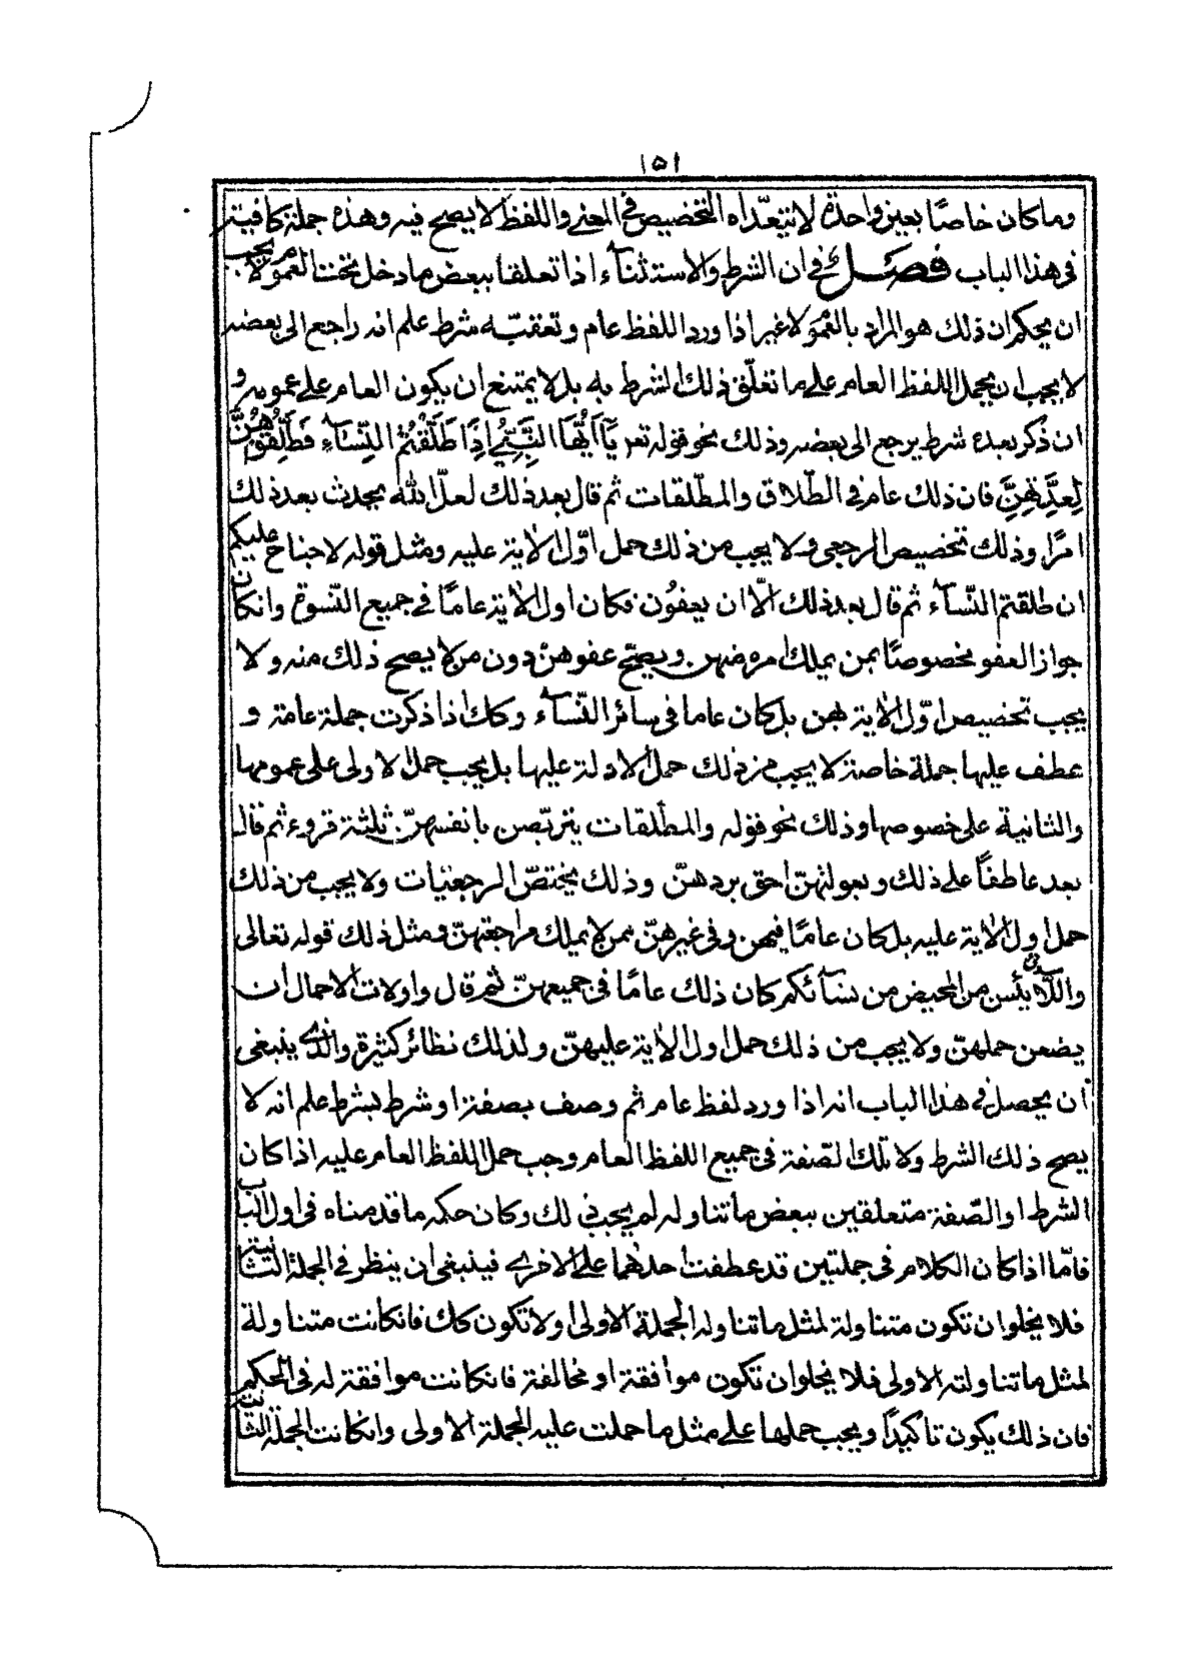 ١٥١
وما كان خاصًا بعين واحدة لا يتعدّاه التخصيص في المعنى واللفظ لا يصح فيه وهذه جملة كافية
في هذا الباب فصل في ان الشرط والاستثناء اذا تعلقا ببعض ما دخل تحت العموم لا يجب
ان يحكم ان ذلك هو المراد بالعموم لا غير اذا ورد اللفظ عام و تعقبّه شرط علم انه راجع الى بعضه
لا يجب ان يحمل اللفظ العام على ما تعلّق ذلك الشرط به بل لا يمتنع ان يكون العام على عمومه و
ان ذكر بعده شرط يرجع الى بعضه وذلك نحو قوله تعر يَآ اَيُّهَا النَّبِيُّ اِذَا طَلَّقْتُمُ النِّسَآءَ فَطَلِّقُوهُنَّ
لِعِدَّتِهِنَّ فان ذلك عام في الطّلاق والمطّلقات ثم قال بعد ذلك لعلّ الله يحدث بعد ذلك
امرًا وذلك تخصيص الرجعى ولا يجب من ذلك حمل اوّل الاٰية عليه ومثل قوله لا جناح عليكم
ان طلقتم النّسآء ثم قال بعد ذلك الّا ان يعفوُن فكان اول الاٰية عامًا في جميع النّسوة وانكان
جواز العفو مخصوصًا بمن يملك امره منهن ويصحّ عفوهنّ دون من لا يصح ذلك منه ولا
يجب تخصيص اوّل الاٰية بهن بل كان عاما في سائر النّسآء وكك اذا ذكرت جملة عامة و
عطف عليها جملة خاصة لا يجب من ذلك حمل الادلة عليها بل يجب حمل الاولى على عمومها
والثانية على خصوصها وذلك نحو قوله والمطلقات يتربّصن بانفسهنّ ثلثة قروء ثم قال
بعد عاطفًا على ذلك وبعولتهنّ احق بردهنّ وذلك يختصّ الرجعيات ولا يجب من ذلك
حمل اول الاٰية عليه بل كان عامًا فيهن وفي غيرهنّ ممن لا يملك مراجعتهنّ ومثل ذلك قوله تعالى
واللّائي يئسن من المحيض من نسآئكم كان ذلك عامًا في جميعهنّ ثم قال واولات الاحمال ان
يضعن حملهنّ ولا يجب من ذلك حمل اول الاٰية عليهنّ ولذلك نظائر كثيرة والّذي ينبغى
أن يحصل في هذا الباب انه اذا ورد لفظ عام ثم وصف بصفة او شرط بشرط علم انه لا
يصح ذلك الشرط ولا تلك الصّفة في جميع اللفظ العام وجب حمل اللفظ العام عليه اذا كان
الشرط او الصّفة متعلقين ببعض ما تناوله لم يجب ذلك وكان حكمه ما قدمناه في اول الباب
فامّا اذا كان الكلام في جملتين قد عطفت احدٰهما على الاخرى فينبغى ان ينظر في الجملة الثانية
فلا يخلوا ان تكون متناولة لمثل ما تناوله الجملة الاولى او لا تكون كك فان كانت متناولة
لمثل ما تناولته الاولى فلا يخلوا ان تكون موافقة او مخالفة فان كانت موافقة له في الحكم
فان ذلك يكون تاكيدًا ويجب حملها على مثل ما حملت عليه الجملة الأولى وانكانت الجملة الثانية